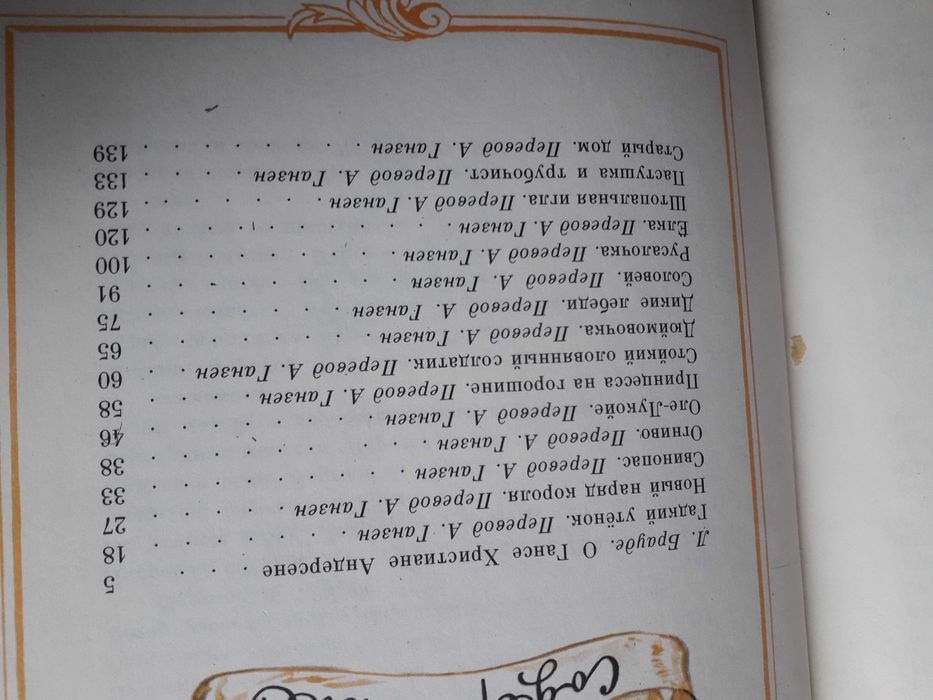 Л. Брауде. О Гансе Христиане Андерсене . . . . 5
Гадкий утёнок. Перевод А. Ганзен . . . . . . . 18
Новый наряд короля. Перевод А. Ганзен . . . . . 27
Свинопас. Перевод А. Ганзен . . . . . . . . 33
Огниво. Перевод А. Ганзен . . . . . . . . . 38
Оле-Лукойе. Перевод А. Ганзен . . . . . . . . 46
Принцесса на горошине. Перевод А. Ганзен . . . . 58
Стойкий оловянный солдатик. Перевод А. Ганзен . . 60
Дюймовочка. Перевод А. Ганзен . . . . . . . 65
Дикие лебеди. Перевод А. Ганзен . . . . . . . 75
Соловей. Перевод А. Ганзен . . . . . . . . 91
Русалочка. Перевод А. Ганзен . . . . . . . . 100
Ёлка. Перевод А. Ганзен . . . . . . . . . 120
Штопальная игла. Перевод А. Ганзен . . . . . . 129
Пастушка и трубочист. Перевод А. Ганзен . . . . 133
Старый дом. Перевод А. Ганзен . . . . . . . 139